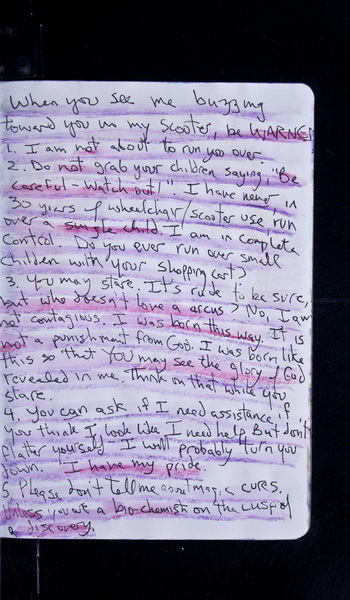 When you see me buzzing
toward you in my scooter, be WARNED
1. I am not about to run you over.
2. Do not grab your children saying, "Be
careful - Watch out!" I have never in
30 years of wheelchair/scooter use run
over a single child. I am in complete
control. Do you ever run over small
children with your shopping cart?
3. You may stare. It's rude to be sure,
but who doesn't love a circus? No, I am
not contagious. I was born this way. It is
not a punishment from God. I was born like
this so that YOU may see the glory of God
revealed in me. Think on that while you
stare.
4. You can ask if I need assistance if
you think I look like I need help. But don't
flatter yourself - I will probably turn you
down. I have my pride.
5. Please don't tell me about magic cures.
Unless you are a bio-chemist on the cusp of
a discovery.